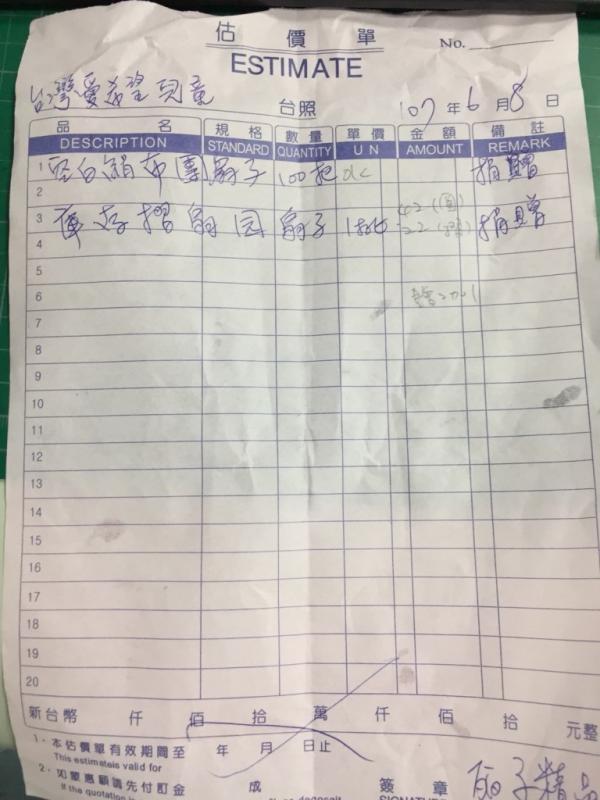 估 價 單
No.
ESTIMATE
台灣愛希望兒童
台照 107 年 6 月 8 日
品 名 規 格 數 量 單 價 金 額 備 註
DESCRIPTION STANDARD QUANTITY U N AMOUNT REMARK
1 空白絹布團扇子 100把 捐贈
2
3 摺扇 扇子 捐贈
4
5
6
7
8
9
10
11
12
13
14
15
16
17
18
19
20
新台幣 仟 佰 拾 萬 仟 佰 拾 元整
1・本估價單有效期間至 年 月 日止
This estimateis valid for
2・如蒙惠顧請先付訂金 成 簽 章
If the quotation SIGNATURE
扇子精品